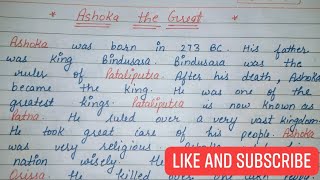 * Ashoka the Great *
Ashoka was born in 273 BC. His father
was king Bindusara. Bindusara was the
ruler of Pataliputra. After his death, Ashoka
became the king. He was one of the
greatest kings. Pataliputra is now known as
Patna. He ruled over a very vast kingdom.
He took great care of his people. Ashoka
was very religious.
nation wisely. He
Orissa. He killed over one
LIKE AND SUBSCRIBE